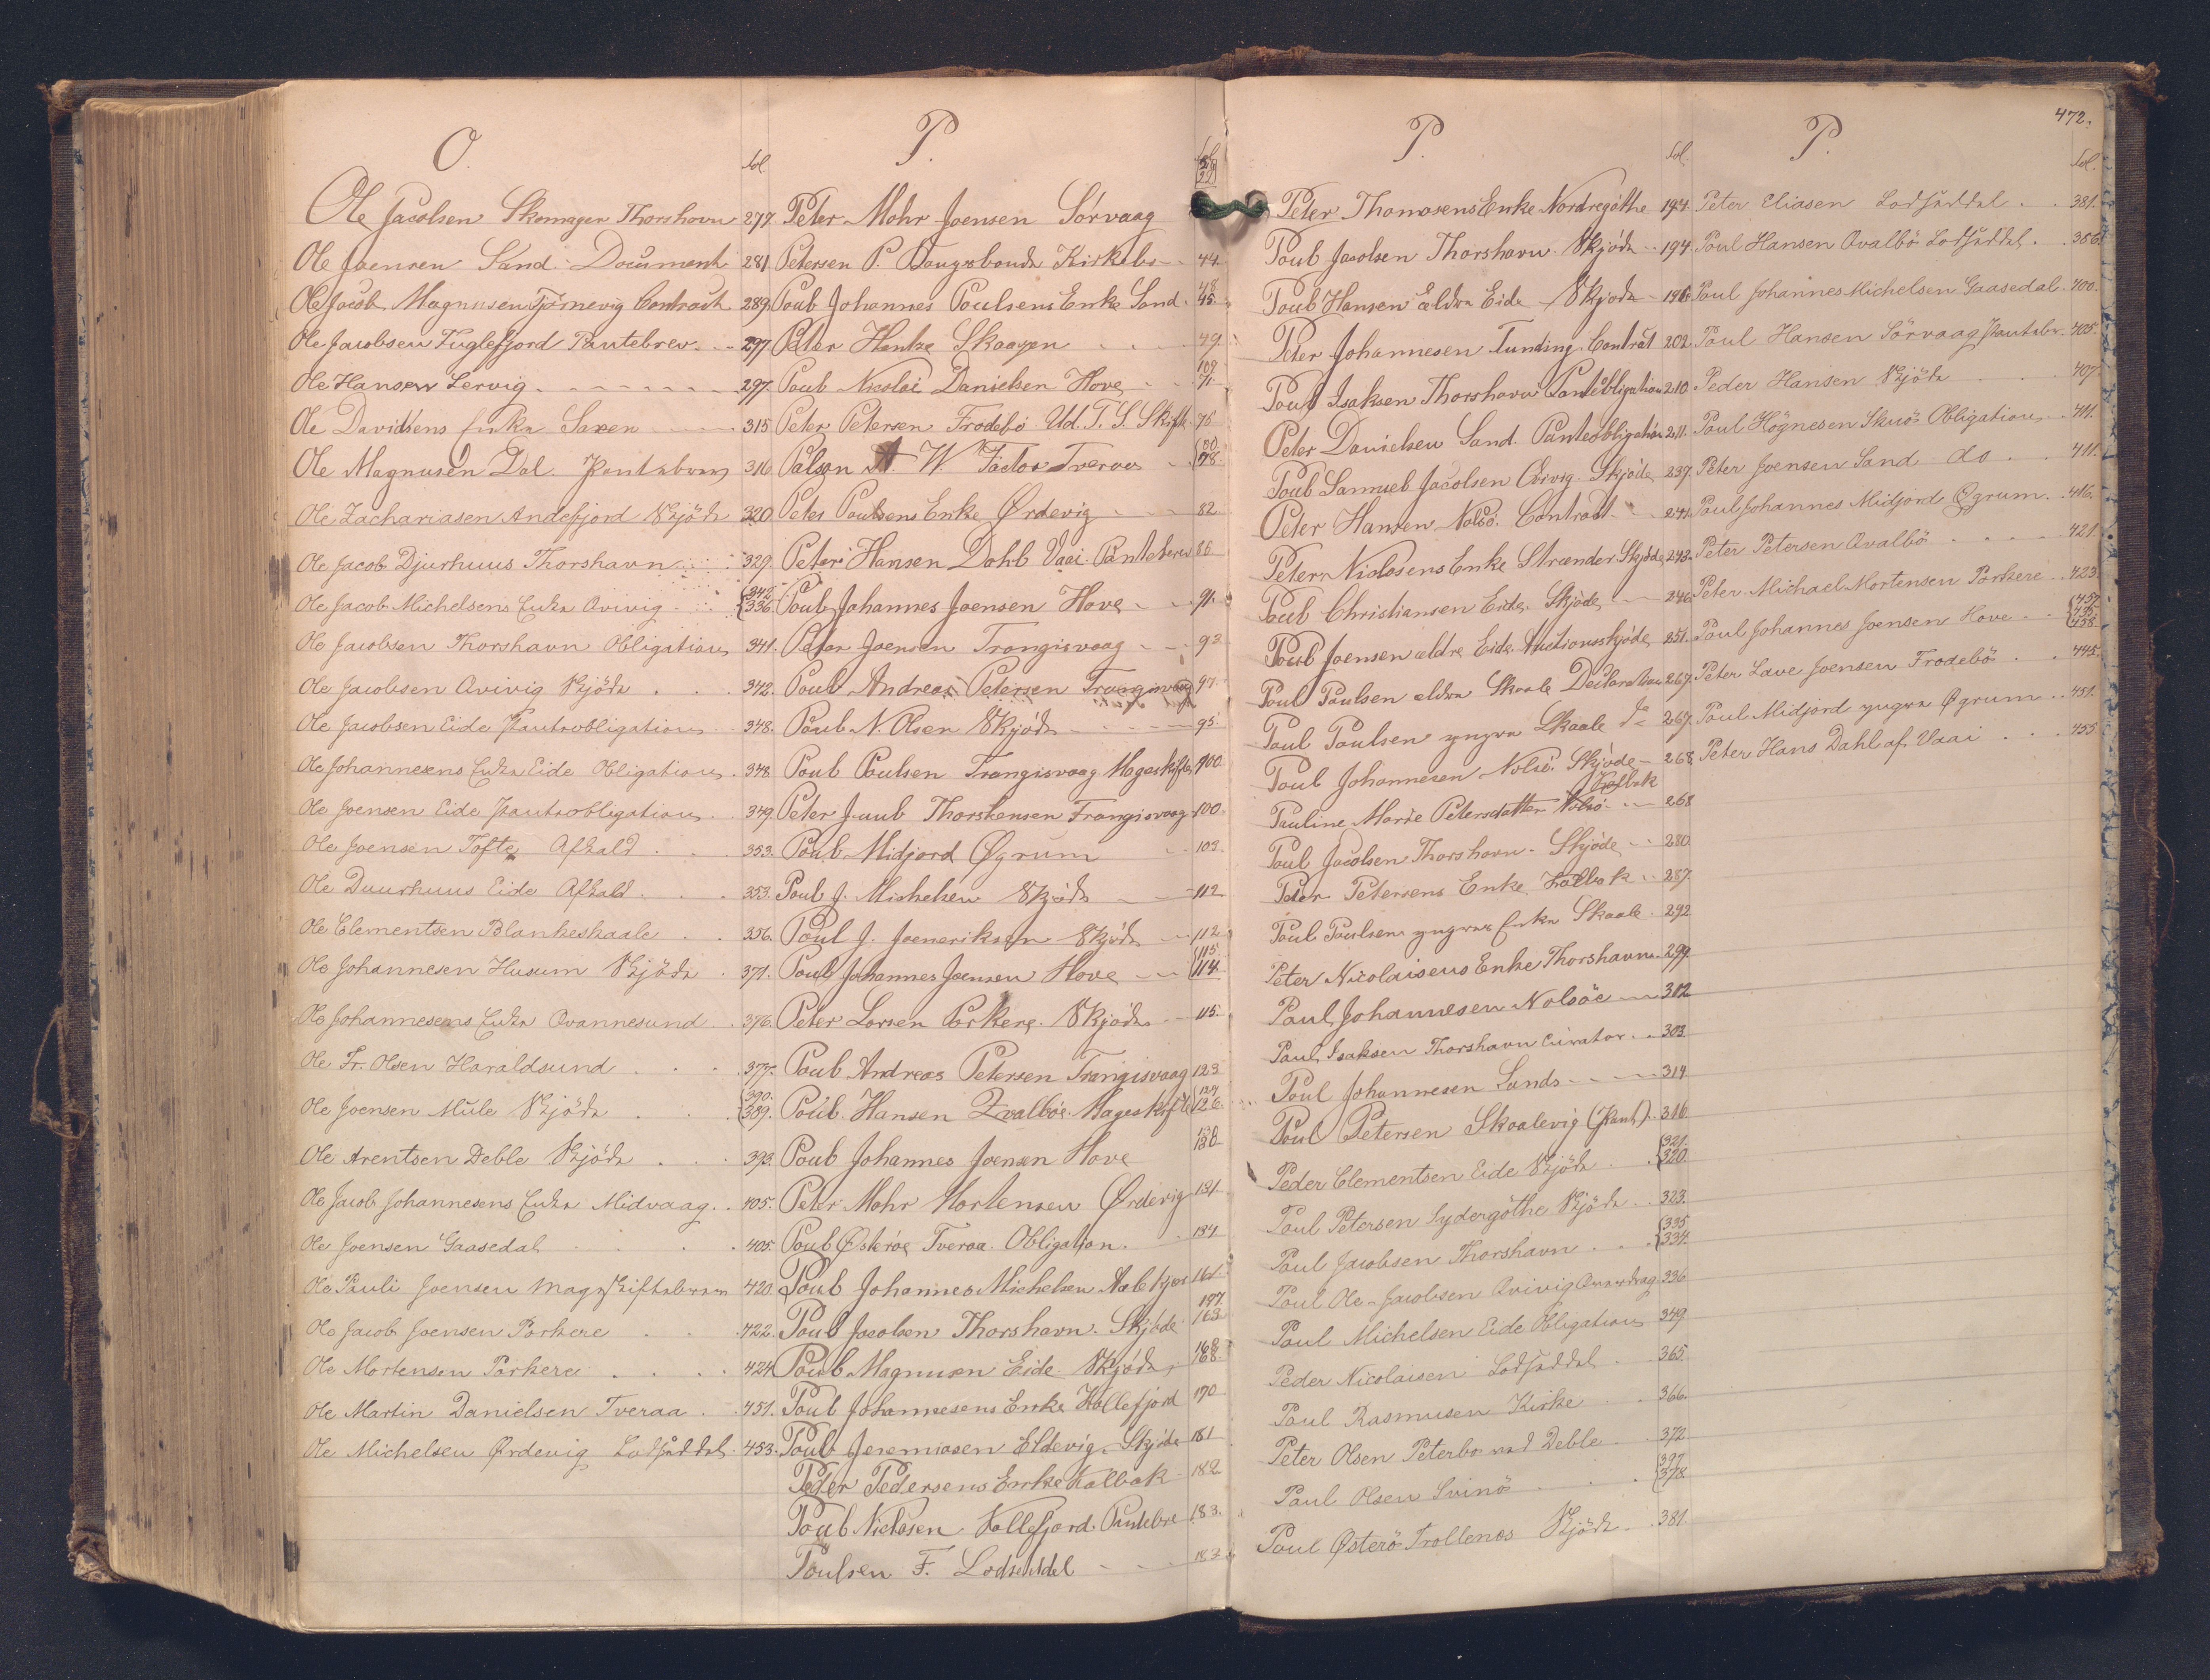 O.
fol.
Ole Jacobsen Skomager Thorshavn 277.
Ole Joensen Sand. Document 281.
Ole Jacob Magnusen Tjörnevig Contract 289.
Ole Jacobsen Fuglefjord Pantebrev 297
Ole Hansen Lervig 297.
Ole Davidsens Enke Saxen 315
Ole Magnusen Dal Pantebrev 316
Ole Zachariasen Andefjord Skjöde 320
Ole Jacob Djurhuus Thorshavn 329.
Ole Jacob Michelsens Enke Qvivig 342. 336.
Ole Jacobsen Thorshavn Obligation 341.
Ole Jacobsen Qvivig Skjöde 342.
Ole Jacobsen Eide Panteobligation 348.
Ole Johannesens Enke Eide Obligation 348.
Ole Joensen Eide Panteobligation 349
Ole Joensen Tofte Afkald 353.
Ole Duurhuus Eide Afkald 353.
Ole Clementsen Blankeskaale 356.
Ole Johannesen Husum Skjöde 371.
Ole Johannesens Enke Qvannesund 376.
Ole Fr. Olsen Haraldsund 377.
Ole Joensen Mule Skjöde 390. 389.
Ole Arentsen Deble Skjöde 393.
Ole Jacob Johannesens Enke Midvaag 405.
Ole Joensen Gaasedal 405.
Ole Pauli Joensen Mageskiftebrev 420.
Ole Jacob Joensen Porkere 422.
Ole Mortensen Porkere 424
Ole Martin Danielsen Tveraa 451.
Ole Michelsen Ørdevig Lodseddel 453.
P.
Peter Mohr Joensen Sörvaag
Petersen P. Kongsbonde Kirkebö 44
Poul Johannes Poulsens Enke Sand 48 45
Peter Hentze Skaapen 49
Poul Nicolai Danielsen Hove 108 71
Peter Petersen Frodebö Ud. T. S. Skifte 76
Palson A W. Factor Tveraa 80 78
Peter Poulsens Enke Ørdevig 82
Peter Hansen Dahl Vaei Pantebrev 86
Poul Johannes Joensen Hove 91
Peter Joensen Trangisvaag 93
Poul Andreas Petersen Trangisvaag 97
Poul N. Olsen Skjöde 95
Poul Poulsen Trangisvaag Mageskifte 100
Peter Jacob Thorstensen Trangisvaag 100
Poul Midjord Øgrum 103
Poul J. Michelsen Skjöde 112
Poul J. Joeneriksen Skjöde 112
Poul Johannes Joensen Hove 115 114
Peter Larsen Porkere. Skjöde 115
Poul Andreas Petersen Trangisvaag 123
Poul Hansen Qvalböe. Mageskifte 134 126
Poul Johannes Joensen Hove 128
Peter Mohr Mortensen Ørdevig 131
Poul Østeröe Tveraa. Obligation. 134
Poul Johannes Michelsen 161
Poul Jacobsen Thorshavn. Skjöde 197 163
Poul Magnusen Eide. Skjöde 168 168
Poul Johannesens Enke Kollefjord 170
Poul Jeremiasen Eldevig. Skjöde 181
Peder Pedersens Enke Kalbak 182
Poul Niclasen Kollefjord. Pantebrev 183.
Poulsen F. Lodseddel 183
P.
fol.
Peter Thomasens Enke Nordregöthe 194.
Poul Jacobsen Thorshavn. Skjöde 194.
Poul Hansen ældre Eide Skjöde 196.
Peter Johannesen Funding. Contract 202.
Poul Isaksen Thorshavn Panteobligation 210.
Peter Danielsen Sand. Panteobligation 211.
Poul Samuel Jacobsen Qvivig. Skjöde 237.
Peter Hansen Nolsö. Contract 241.
Peter Niclasens Enke Strænder Skjöde 243.
Poul Christiansen Eide. Skjöde 246
Poul Joensen ældre Eide Auctionsskjöde 251.
Poul Poulsen ældre Skaale Declaration 267.
Poul Poulsen yngre Skaale do 267.
Poul Johannesen Nolsö. Skjöde 268.
Pauline Marie Petersdatter Nolsö Kalbak 268
Poul Jacobsen Thorshavn. Skjöde 280
Peter Petersens Enke Kalbak 287.
Poul Poulsens yngres Enke Skaale 292
Peter Nicolaisens Enke Thorshavn 299.
Poul Johannesen Nolsöe 302
Poul Isaksen Thorshavn Curator 303.
Poul Johannesen Sands 314
Poul Petersen Skaalevig (Pant) 316
Peder Clementsen Eide Skjöde 321. 320.
Poul Petersen Sydergöthe Skjöde 323.
Poul Jacobsen Thorshavn 335 334.
Poul Ole Jacobsen Qvivig 336
Poul Michelsen Eide Obligation 349
Peder Nicolaisen Lodseddel 365.
Poul Rasmusen Kirke 366.
Peter Olsen Peterbo ved Deble 372
Poul Olsen Svinö 397 378.
Poul Østerö Trollenæs Skjöde 381.
472.
P.
fol.
Peter Eliasen Lodseddel 381.
Poul Hansen Qvalbö Lodseddel 386.
Poul Johannes Michelsen Gaasedal 400.
Poul Hansen Sörvaag Pantebr. 405.
Peder Hansen Skjöde 407
Poul Högnesen Skuö Obligation 411.
Peter Joensen Sand do 411.
Poul Johannes Midjord Øgrum 416.
Peter Petersen Qvalbö 421
Peter Michael Mortensen Porkere 423.
Poul Johannes Joensen Hove 457 438
Peter Lave Joensen Frodebö 445.
Poul Midjord yngre Øgrum 451.
Peter Hans Dahl af Vaai 455